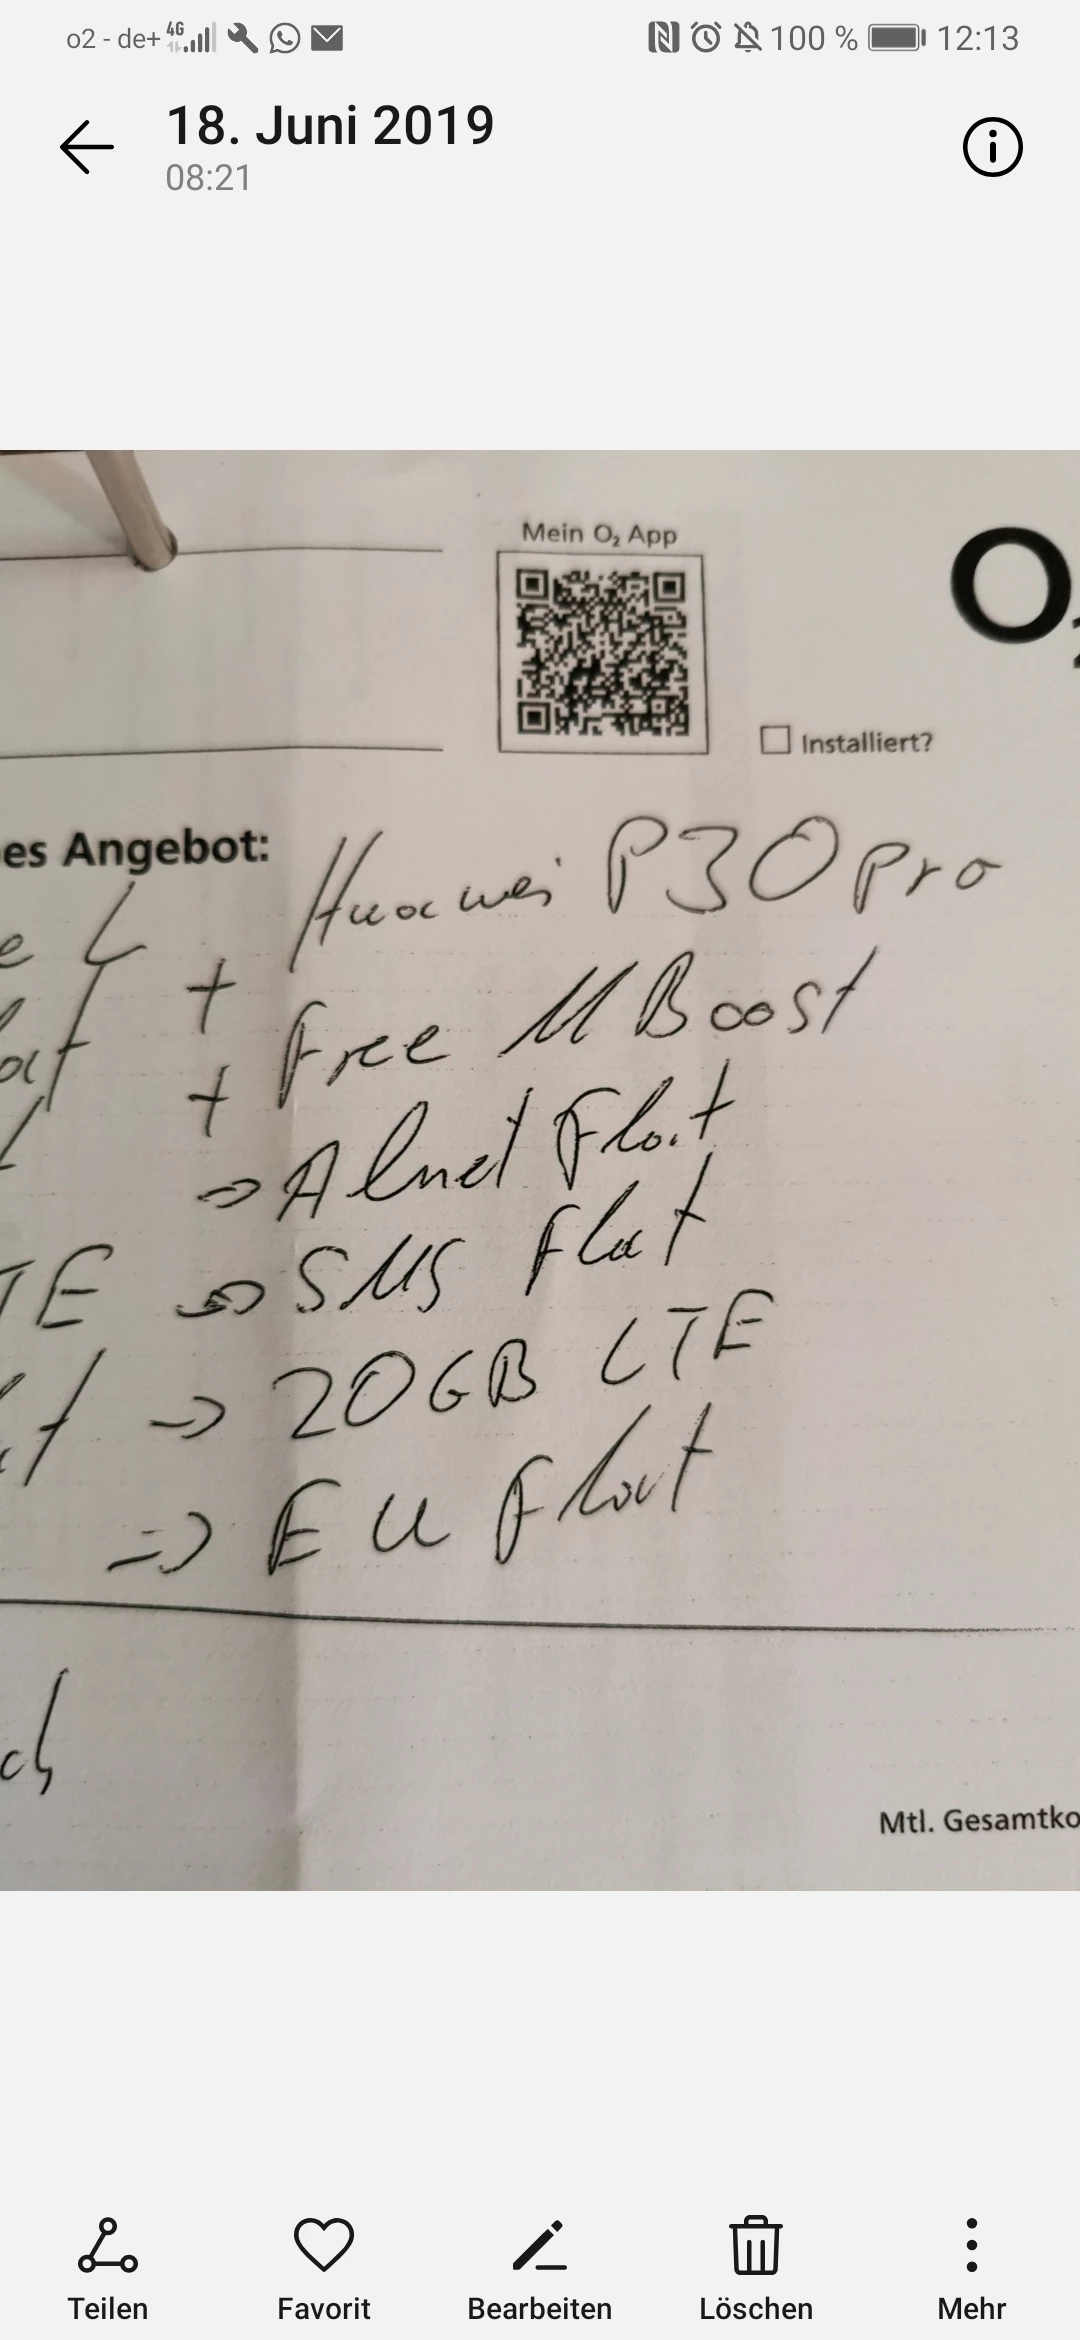 o2 - de+ 4G 100 % 12:13
18. Juni 2019
08:21
Mein O₂ App
O₂
Installiert?
es Angebot:
Huawei P30 Pro
e L
+ Free M Boost
at
+
⇒ Alnet Flat
TE ⇒ SMS Flat
→ 20GB LTE
⇒ EU Flat
ch
Mtl. Gesamtko
Teilen Favorit Bearbeiten Löschen Mehr